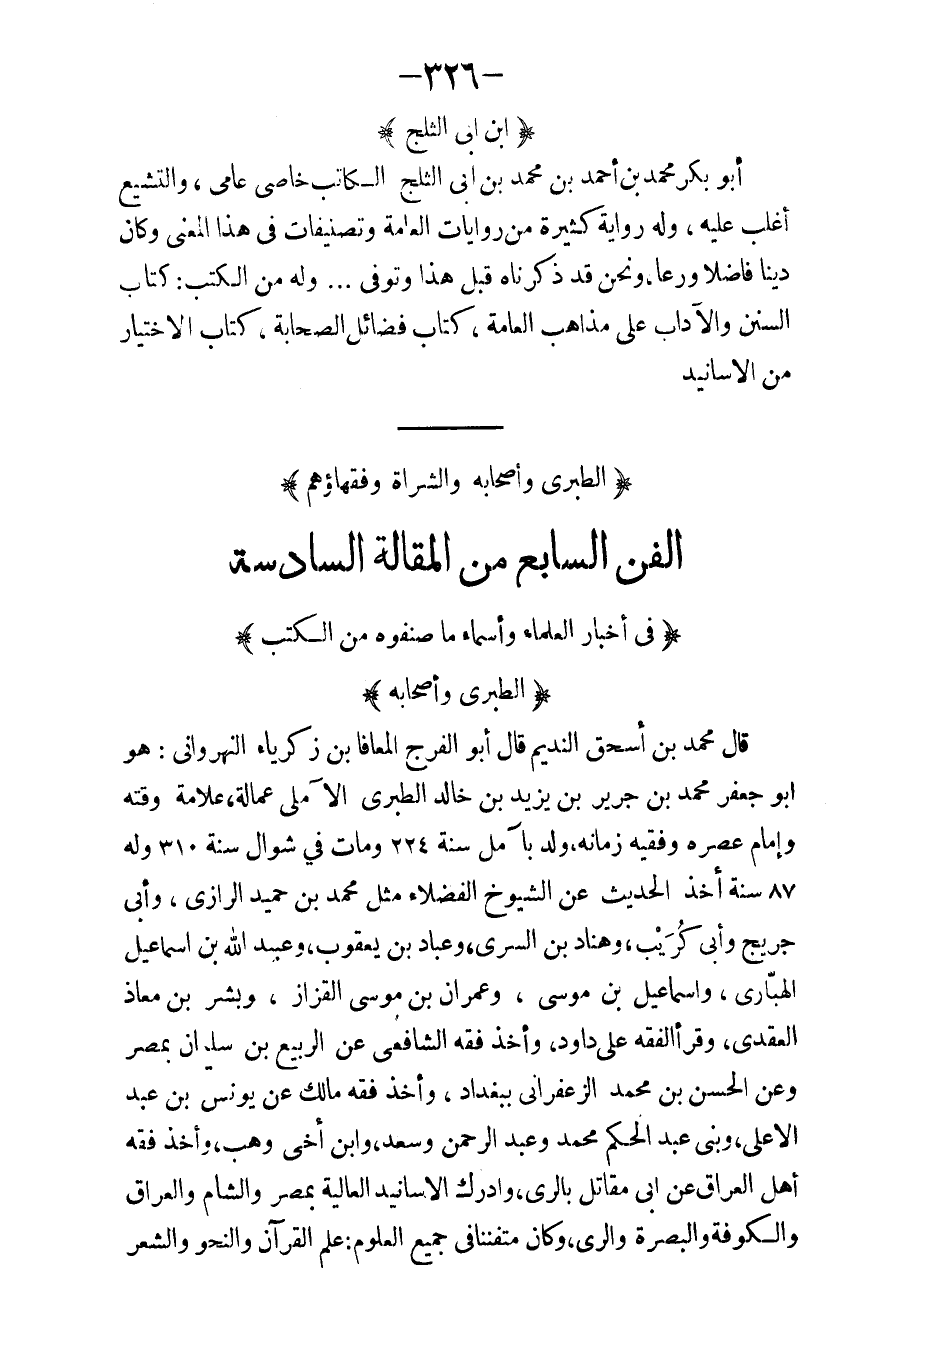 —٣٢٦—
﴿ ابن ابى الثلج ﴾
أبو بكر محمد بن أحمد بن محمد بن ابى الثلج الكاتب خاصى عامى ، والتشيع
أغلب عليه ، وله رواية كثيرة من روايات العامة وتصنيفات فى هذا المعنى وكان
دينا فاضلا ورعا، ونحن قد ذكرناه قبل هذا وتوفى ... وله من الكتب : كتاب
السنن والآداب على مذاهب العامة ، كتاب فضائل الصحابة ، كتاب الاختيار
من الاسانيد
﴿ الطبرى وأصحابه والشراة وفقهاؤهم ﴾
الفن السابع من المقالة السادسة
﴿ فى أخبار العلماء وأسماء ما صنفوه من الكتب ﴾
﴿ الطبرى وأصحابه ﴾
قال محمد بن أسحق النديم قال أبو الفرج المعافا بن زكرياء النهروانى : هو
ابو جعفر محمد بن جرير بن يزيد بن خالد الطبرى الآملى عمالة، علامة وقته
وإمام عصره وفقيه زمانه، ولد بآمل سنة ٢٢٤ ومات في شوال سنة ٣١٠ وله
٨٧ سنة أخذ الحديث عن الشيوخ الفضلاء مثل محمد بن حميد الرازى ، وأبى
جريج وأبى كُرَيْب، وهناد بن السرى، وعباد بن يعقوب، وعبيد الله بن اسماعيل
الهبّارى ، واسماعيل بن موسى ، وعمران بن موسى القزاز ، وبشر بن معاذ
العقدى، وقرأ الفقه على داود، وأخذ فقه الشافعى عن الربيع بن سليمان بمصر
وعن الحسن بن محمد الزعفرانى ببغداد ، وأخذ فقه مالك عن يونس بن عبد
الاعلى، وبنى عبد الحكم محمد وعبد الرحمن وسعد، وابن أخى وهب، وأخذ فقه
أهل العراق عن ابى مقاتل بالرى، وادرك الاسانيد العالية بمصر والشام والعراق
والكوفة والبصرة والرى، وكان متفننا فى جميع العلوم: علم القرآن والنحو والشعر